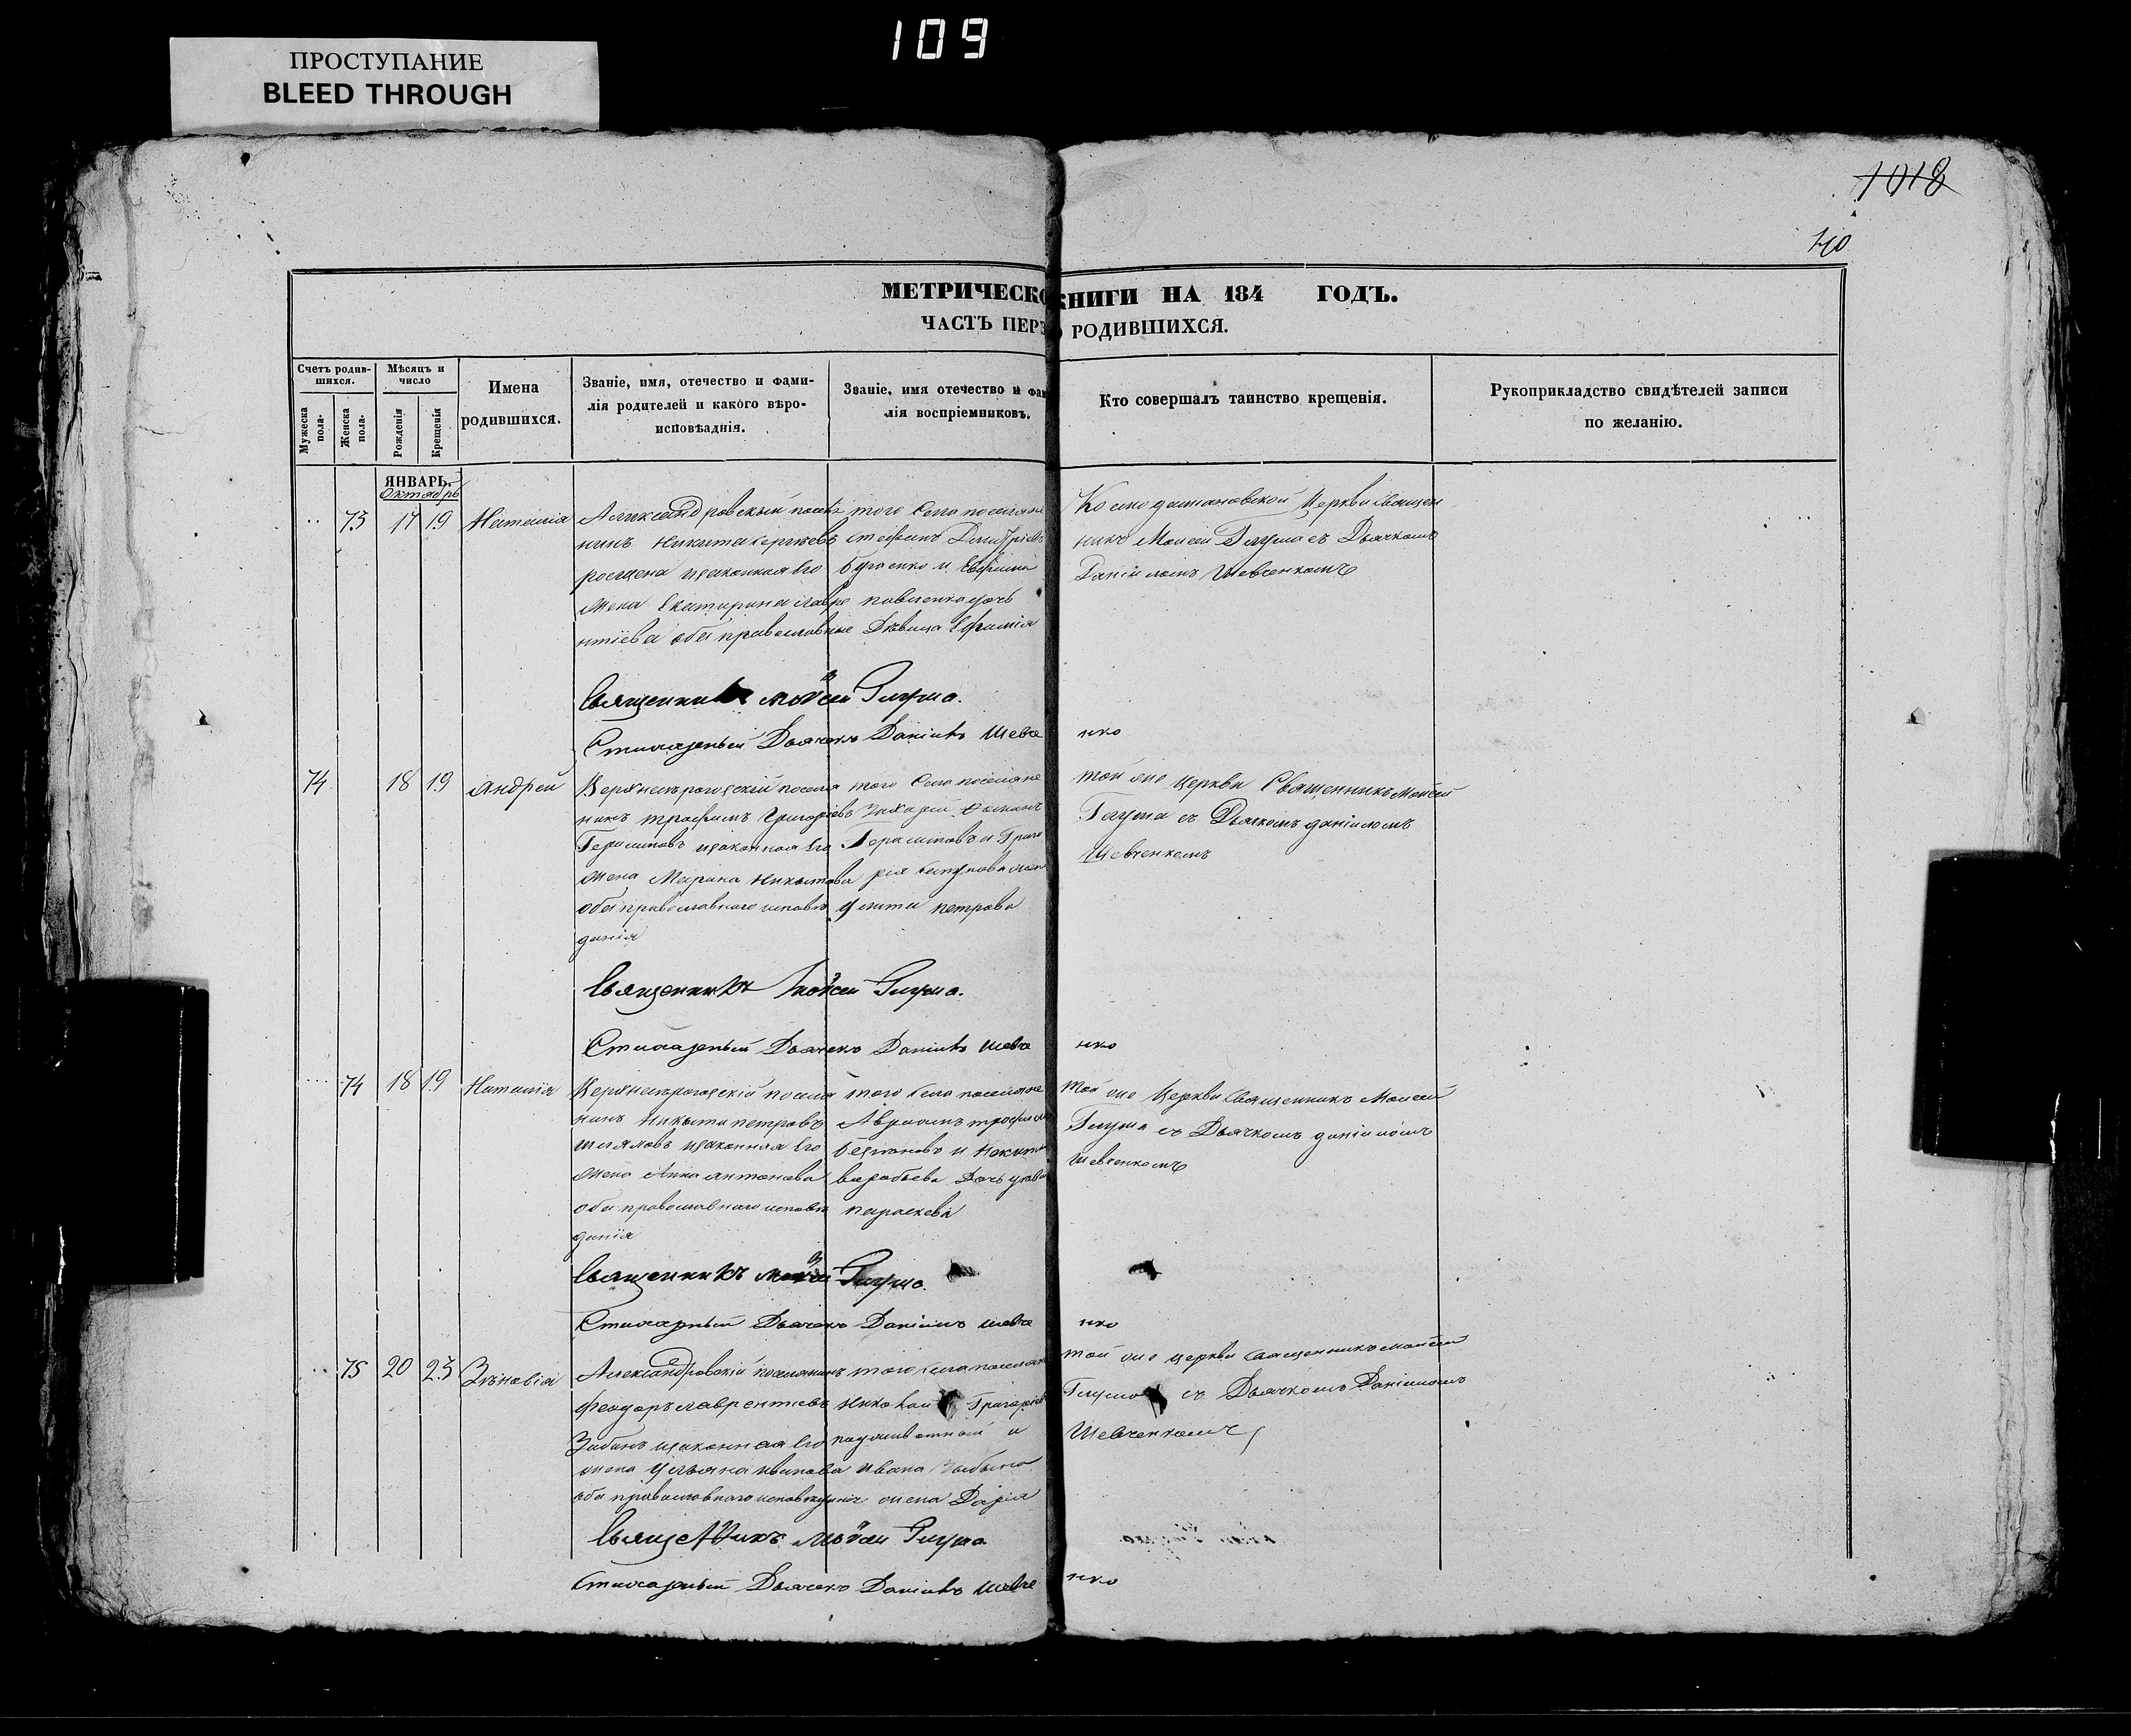 109
ПРОСТУПАНИЕ
BLEED THROUGH
1018
МЕТРИЧЕСКО КНИГИ НА 184 ГОДЪ.
ЧАСТЬ ПЕР РОДИВШИХСЯ.
Счетъ родив-
шихся.
Мужеска
пола.
Женска
пола.
Мѣсяцъ и
число
Рожденія
Крещенія
Имена
родившихся.
Званіе, имя, отечество и фами-
лія родителей и какого вѣро-
исповѣаднія.
Званіе, имя отечество и фам
лія воспріемниковъ.
Кто совершалъ таинство крещенія.
Рукоприкладство свидѣтелей записи
по желанію.
ЯНВАРЬ.
Октябрь
73 17 19 Наталія
Александровскый посел
нинъ Никита Сергѣевъ
изаконная Его
жена Екатирина Лавре
нтіева оба православные
того Села поселяне
Стефанъ Дмитріевъ
и Евфиміи
дочь
Дѣвица Ефимія
Космодаміановской Церкви Священ
никъ Моисей Глума съ Дьячкомъ
Даніиломъ Шевченкомъ
Священникъ Мойсей Глума.
Стихарный Дьячекъ Даніилъ Шевче нко
74 18 19 Андрей
Верхнесѣрогозскій поселя
нинъ Трофимъ Григоріевъ
Герасимовъ изаконная Его
жена Марина Никитова
оба православнаго исповѣ
данія
того Села поселяне
Захарій
Герасимовъ и Григо
рія жен
Улита Петрова
той же Церкви Священникъ Моисей
Глума съ Дьячкомъ Даніиломъ
Шевченкомъ
Священникъ Мойсей Глума.
Стихарный Дьячекъ Даніилъ Шевче нко
74 18 19 Наталія
Верхнесѣрогозскій поселя
нинъ Никита Петровъ
Шляховъ изаконная Его
жена Анна Антонова
оба православнаго исповѣ
данія
того Села поселяне
Аврамъ Трофим
и Никиты
Воробьева Дочь
Параскева
той же Церкви Священникъ Моисей
Глума съ Дьячкомъ Даніиломъ
Шевченкомъ
Священникъ Мойсей Глума.
Стихарный Дьячекъ Даніилъ Шевче нко
75 20 23 Зѣновія
Александровскій поселянинъ
Феодоръ Лаврентіевъ
Забанъ изаконная Его
жена Ульяна Иванова
оба православнаго исповѣданія
того Села поселяне
Николай Григоріев
и
Ивана
жена Дарія
той же Церкви Священникъ Моисей
Глума съ Дьячкомъ Даніиломъ
Шевченкомъ
Священникъ Мойсей Глума
Стихарный Дьячекъ Даніилъ Шевче нко